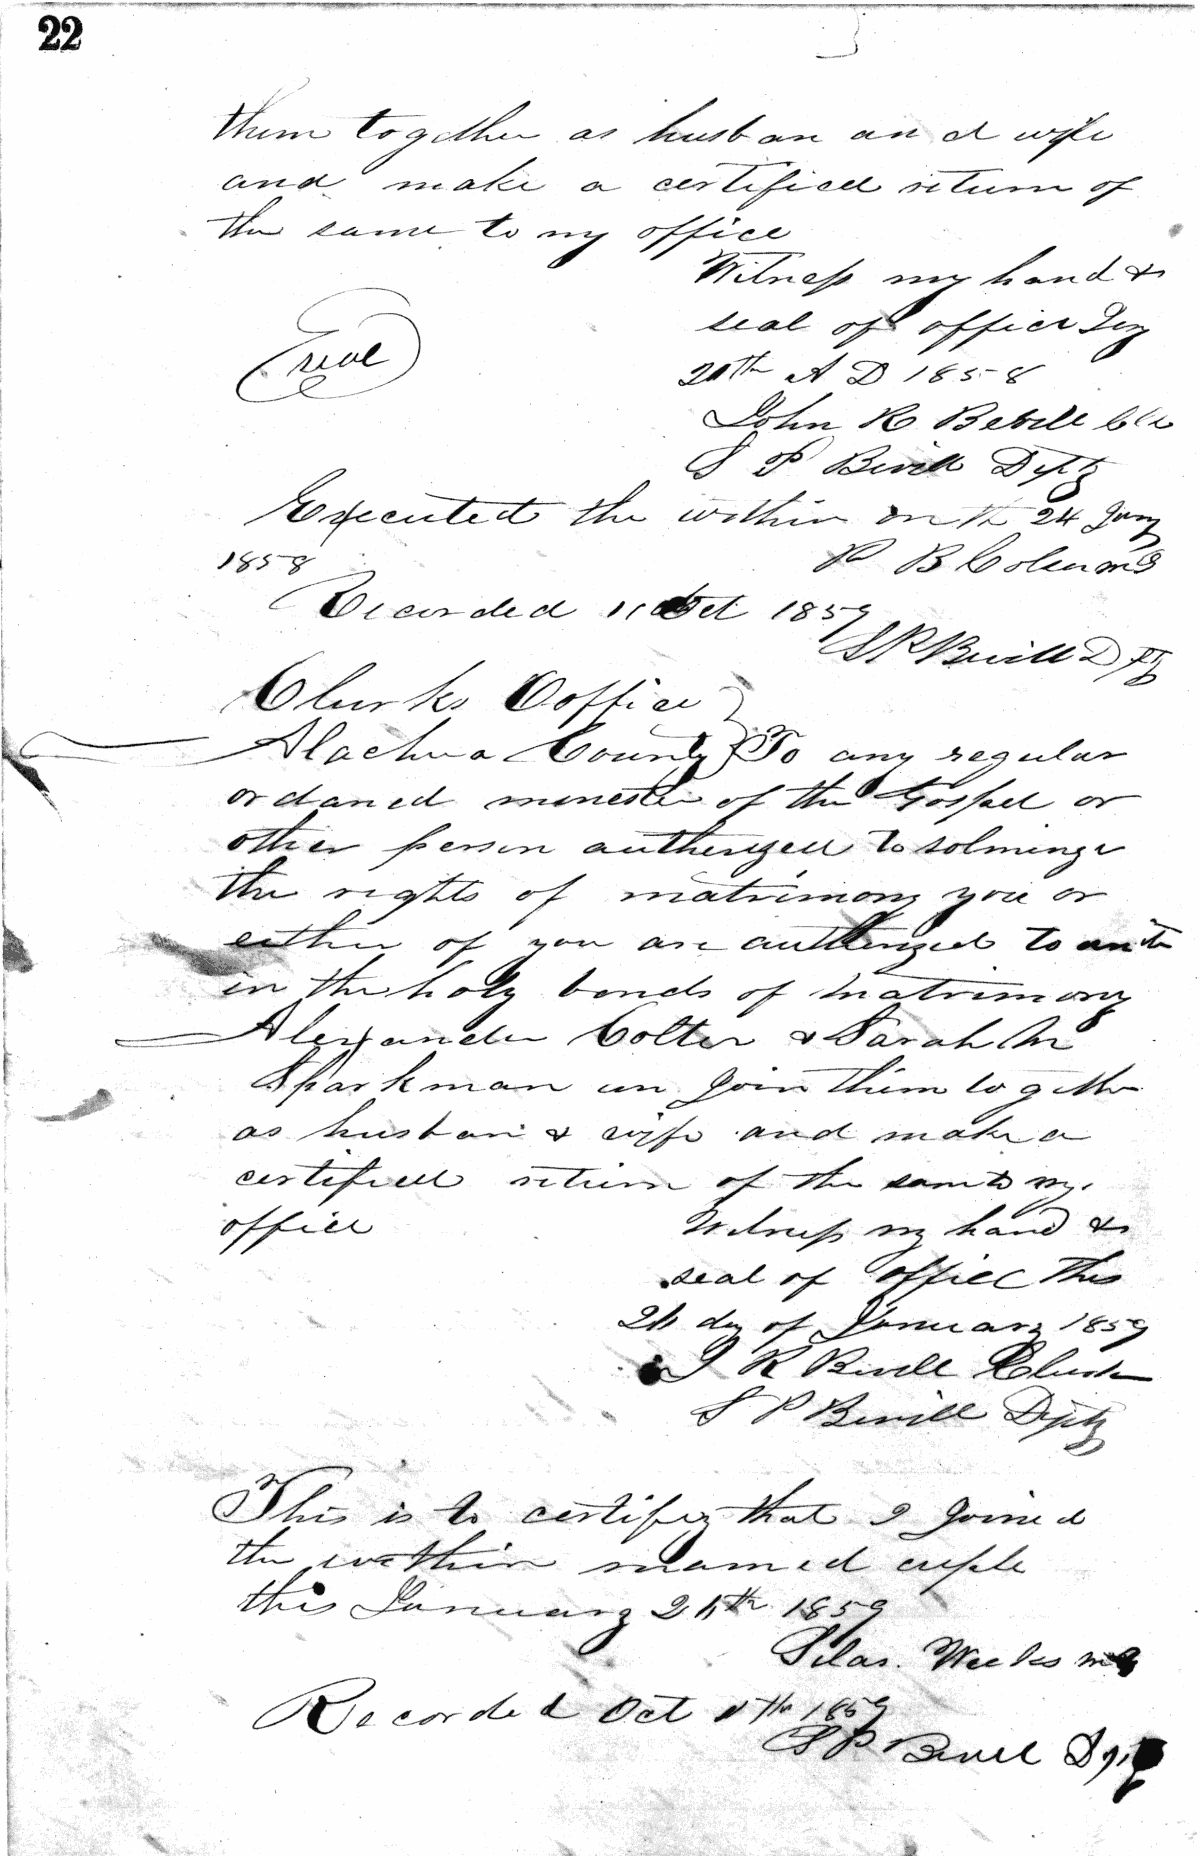 22
them together as husban and wife
and make a certified return of
the same to my office
Witness my hand &
seal of office
seal
20th A D 1858
John R Bevill Clk
S P Bevill Dpty
Executed the within on the 24 Jany
1858
P B
Recorded 11 Oct 1859
S P Bevill Dpty
Clerks Ooffice
Alachua County } To any regular
ordaned minester of the Gospel or
other person autherized to solminze
the rights of matrimony you or
either of you are autherized to unite
in the holy bonds of matrimony
Alexander Colter & Sarah M
Sparkman un Join them together
as husban & wife and make a
certified return of the same to my
office
Witness my hand &
seal of office this
day of January 1859
J R Bevill Clerk
S P Bevill Dpty
This is to certify that I Joined
the within named cuple
this January 1859
Silas Weeks MG
Recorded Oct 11th 1859
S P Bevill Dpty